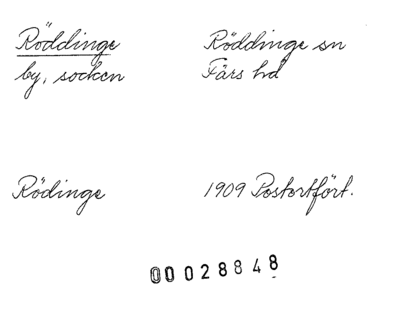 Röddinge
by, socken
Röddinge sn
Färs hd
Rödinge
1909 Postortfört.
00028848